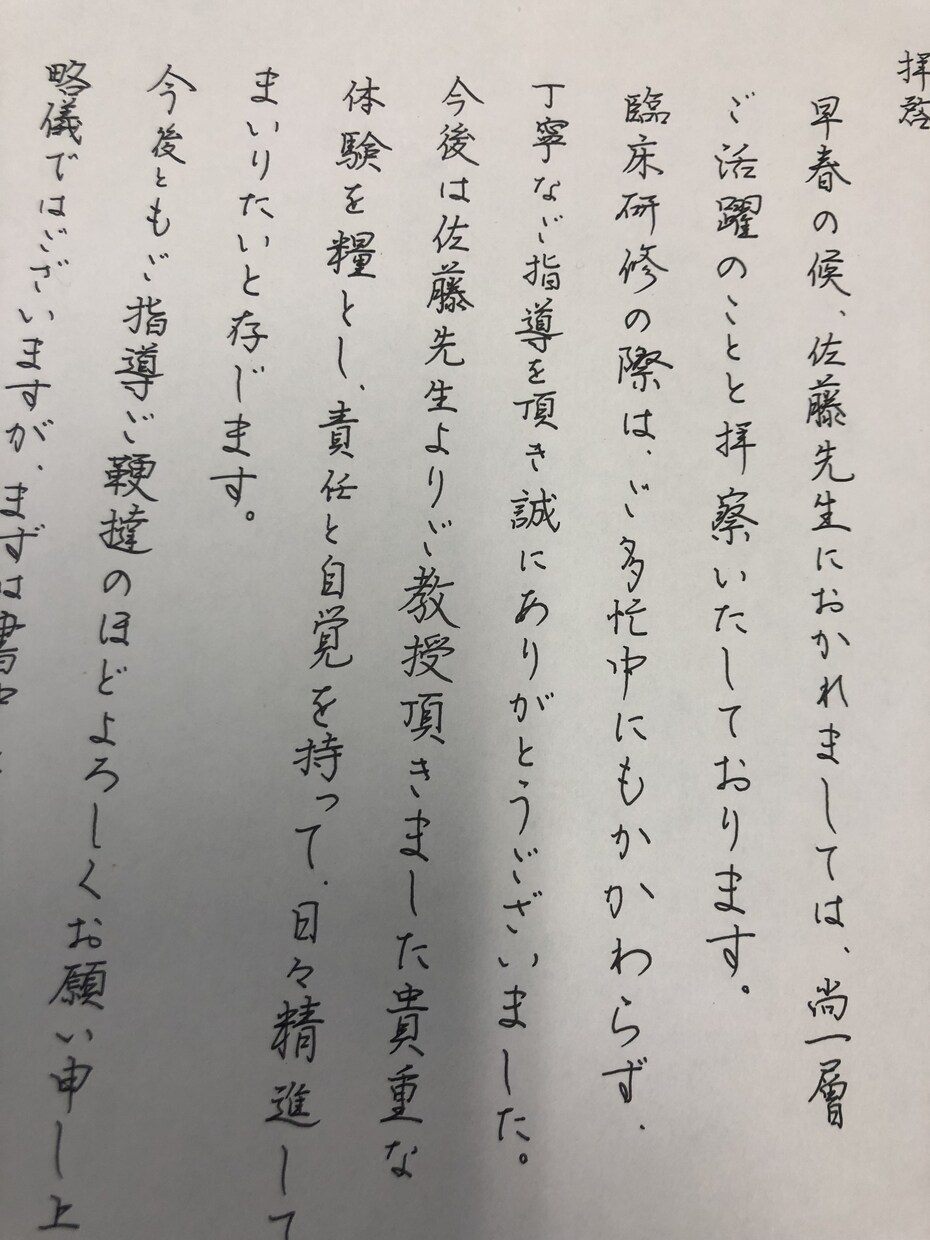 拝啓
早春の候、佐藤先生におかれましては、尚一層
ご活躍のことと拝察いたしております。
臨床研修の際は、ご多忙中にもかかわらず、
丁寧なご指導を頂き誠にありがとうございました。
今後は佐藤先生よりご教授頂きました貴重な
体験を糧とし、責任と自覚を持って、日々精進して
まいりたいと存じます。
今後ともご指導ご鞭撻のほどよろしくお願い申し上
略儀ではございますが、まずは書中